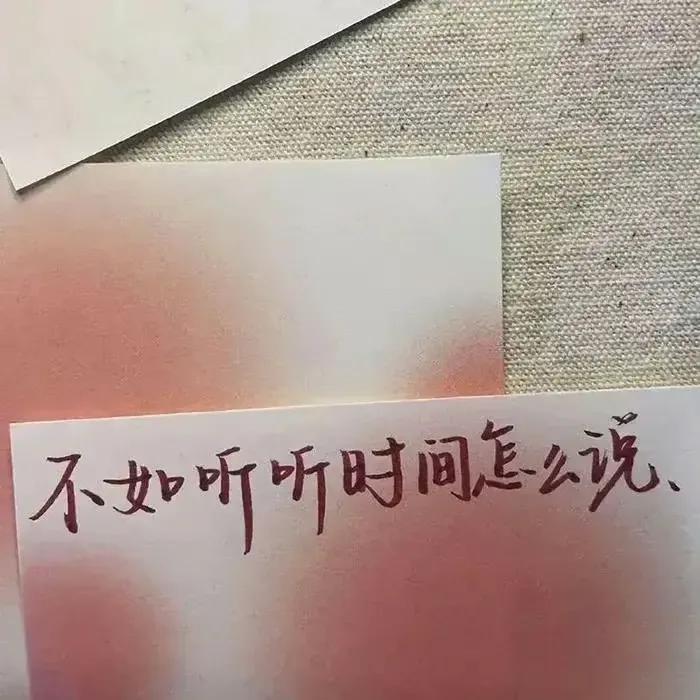 不如听听时间怎么说、